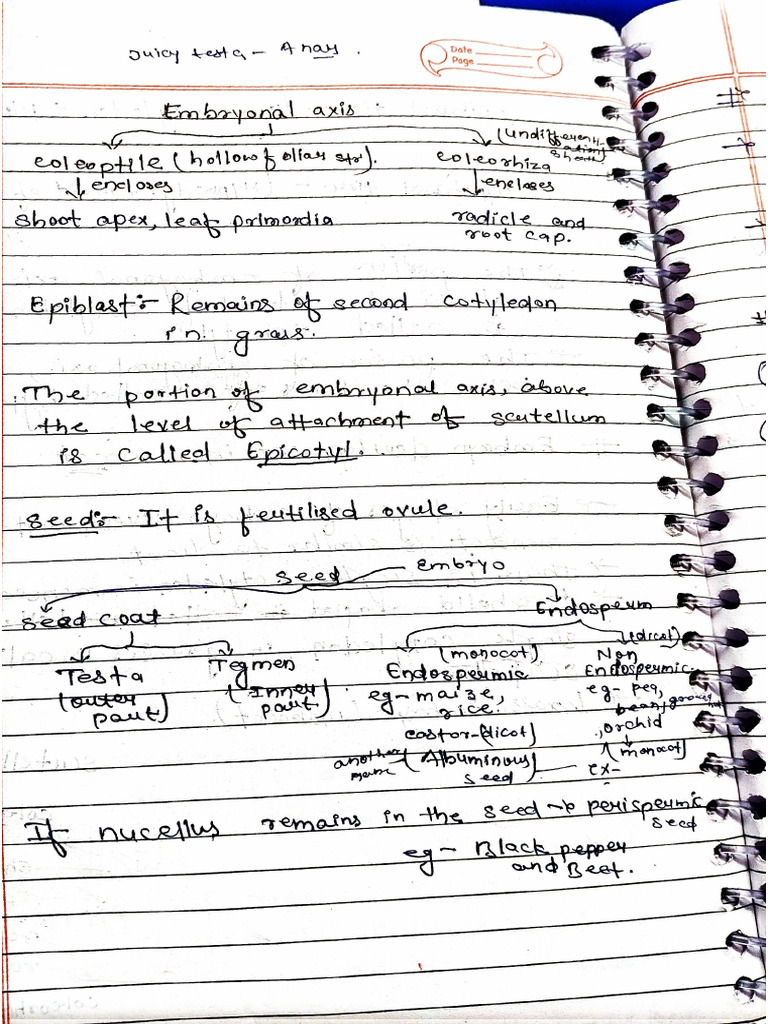 Juicy testa - Anar.
Date
Page
Embryonal axis
coleoptile (hollow foliar str).
coleorhiza (undifferentiation sheath)
encloses
encloses
shoot apex, leaf primordia
radicle and
root cap.
Epiblast:- Remains of second cotyledon
in grass.
The portion of embryonal axis, above
the level of attachment of scutellum
is called Epicotyl.
Seed:- It is fertilised ovule.
seed embryo
seed coat
Endosperm
Testa
(outer
part)
Tegmen
(Inner
part)
(monocot)
Endospermic
eg- maize,
rice.
castor-(dicot)
another
name
(Albuminous
seed)
(dicot)
Non
Endospermic.
eg- pea,
bean,
, orchid
(monocot)
ex-
If nucellus remains in the seed → perispermic
seed
eg- Black pepper
and Beet.